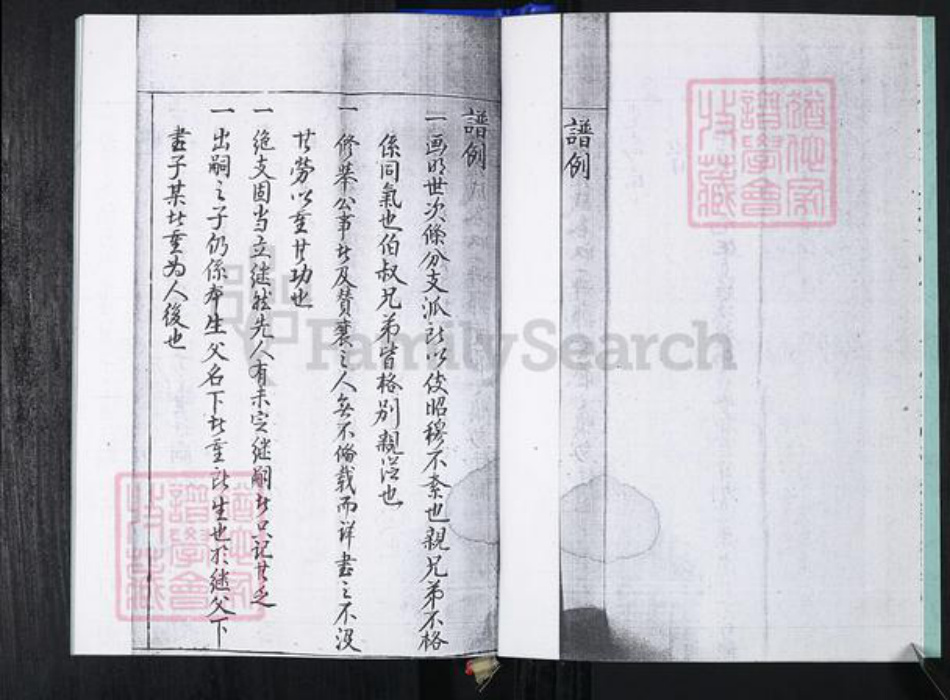 譜例
譜例
一画明世次條分支派所以使昭穆不紊也親兄弟不格
係同氣也伯叔兄弟皆格別親從也
一修举公事者及賛襄之人無不俻载而详書之不没
其勞以重其功也
一绝支固当立继然先人有未定继嗣者只记其乏
一出嗣之子仍係本生父名下者重所生也於继父下
書子某者重为人後也
FamilySearch
譜學會
收藏
譜學會
收藏